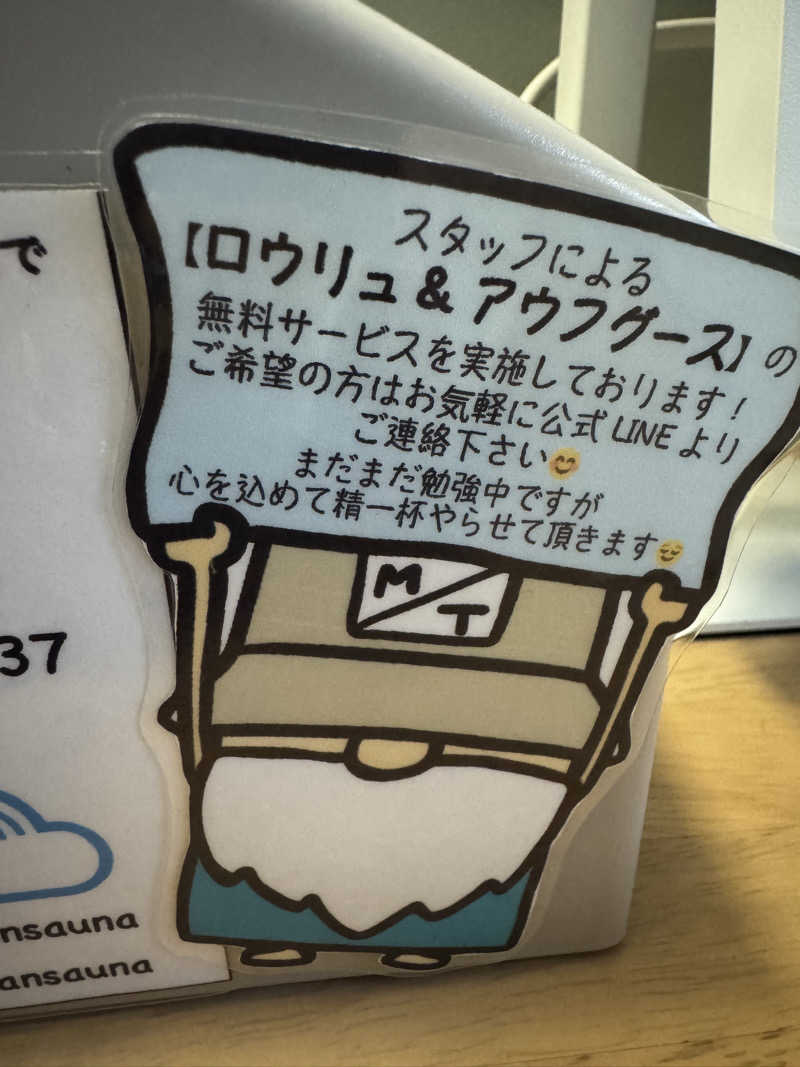 スタッフによる
【ロウリュ&アウフグース】の
無料サービスを実施しております!
ご希望の方はお気軽に公式LINEより
ご連絡下さい😊
まだまだ勉強中ですが
心を込めて精一杯やらせて頂きます😌
M
T
で
37
nsauna
ansauna